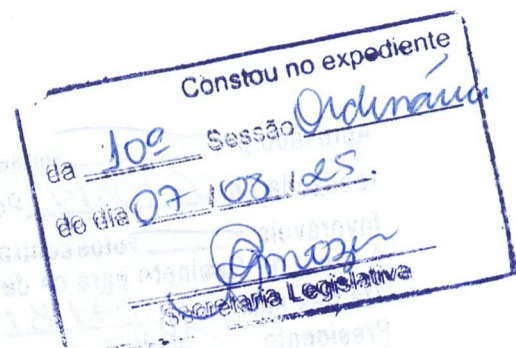 Constou no expediente
da 10ª Sessão Ordinária
do dia 07 / 08 / 25.
Secretaria Legislativa